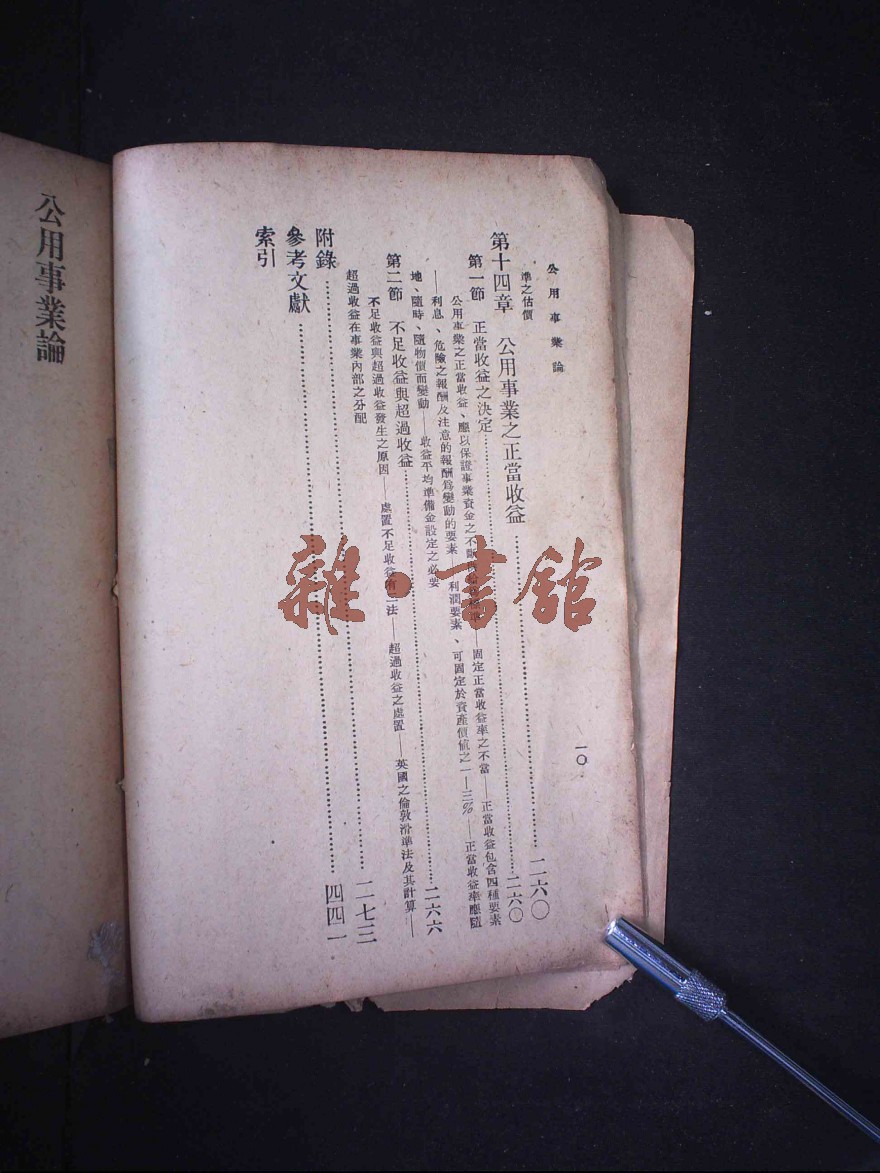 公用事業論
一〇
準之估價
第十四章 公用事業之正當收益……二六〇
第一節 正當收益之決定……二六〇
公用事業之正當收益、應以保證事業資金之不斷——固定正當收益率之不當——正當收益包含四種要素
——利息、危險之報酬及注意的報酬爲變動的要素——利潤要素、可固定於資產價值之一——三%——正當收益率應隨
地、隨時、隨物價而變動——收益平均準備金設定之必要
第二節 不足收益與超過收益……二六六
不足收益與超過收益發生之原因——處置不足收益有二法——超過收益之處置——英國之倫敦滑準法及其計算——
超過收益在事業內部之分配
附錄……二七三
參考文獻……四四一
索引
公用事業論
雜·書館